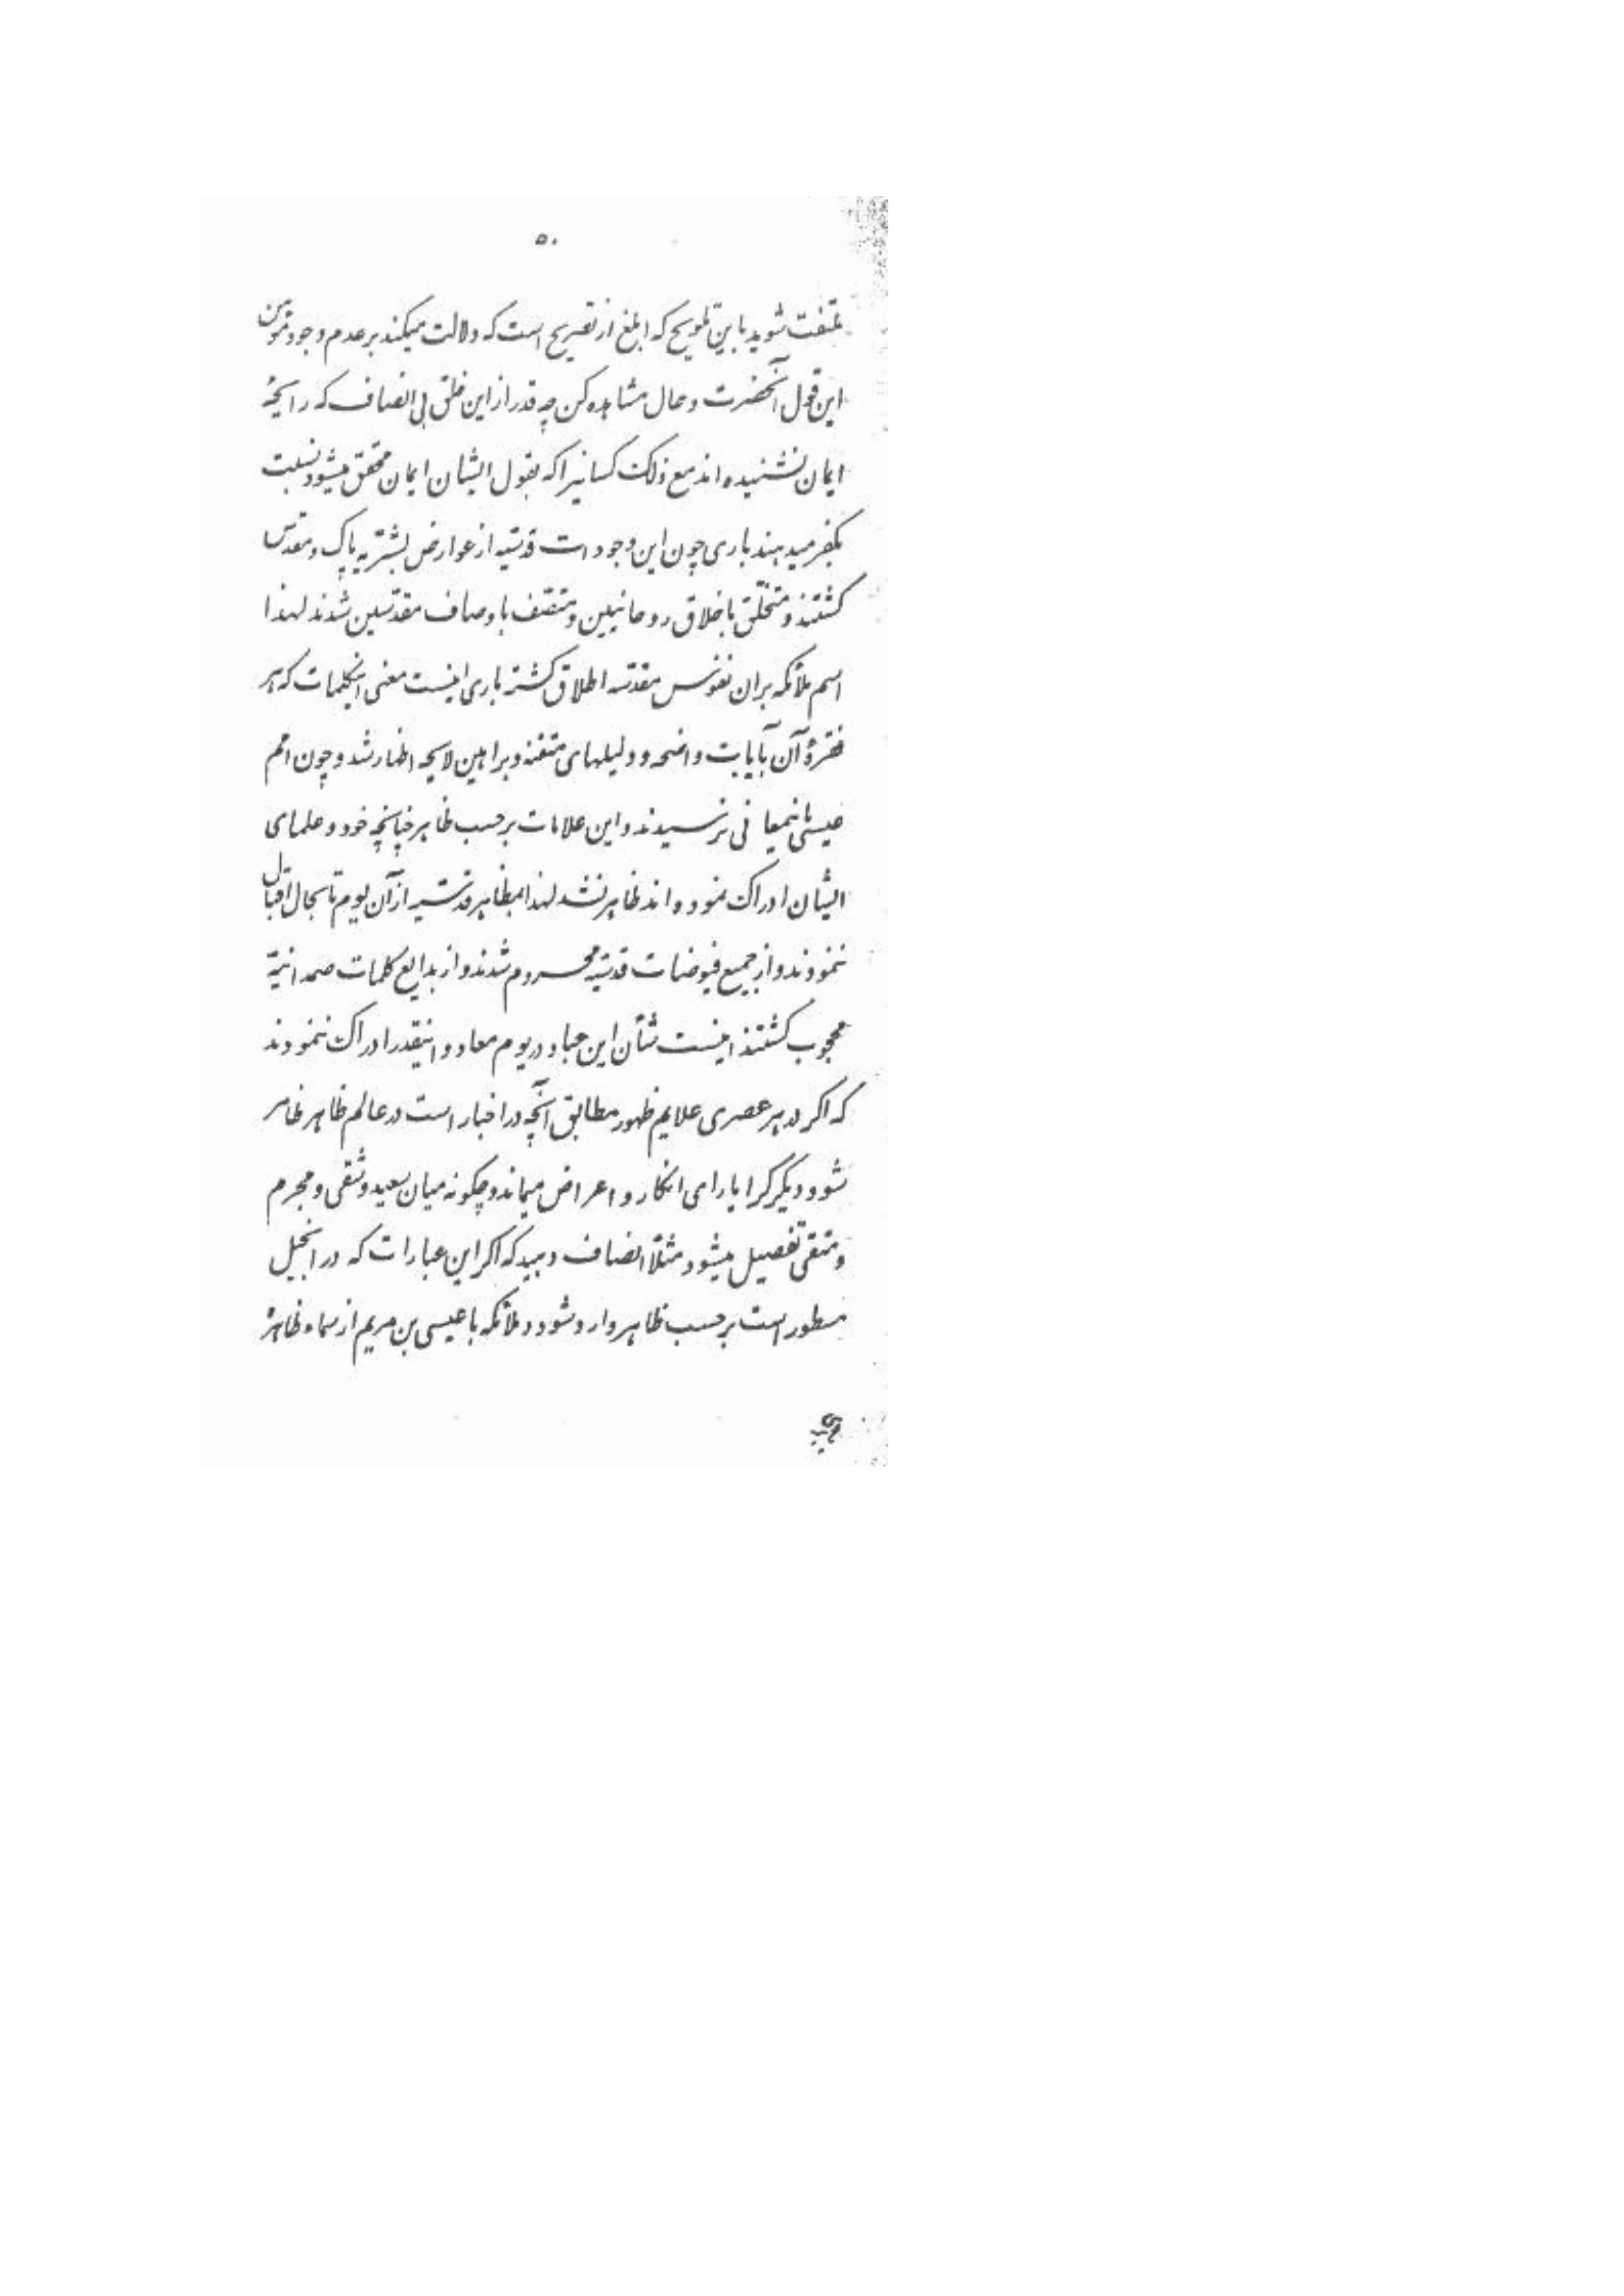 ۵۰
ملتفت شوید باین تلویح که ابلغ از تصریح است که دلالت میکند بر عدم وجود مؤمن
این قول آنحضرت و حال مشاهده کن چه قدر از این خلق بی انصاف که رایحهٔ
ایمان نشنیده اند مع ذلک کسانیرا که بقول ایشان ایمان محقق میشود نسبت
بکفر میدهند باری چون این وجودات قدسیه از عوارض بشریه پاک و مقدس
کشتند و متخلق باخلاق روحانیین و متصف باوصاف مقدسین شدند لهذا
اسم ملائکه بران نفوس مقدسه اطلاق کشته باری اینست معنی اینکلمات که هر
فقرهٔ آن بآیات واضحه و دلیلهای متقنه و براهین لایحه اظهار شد و چون امم
عیسی باینمعانی نرسیدند و این علامات بر حسب ظاهر چنانچه خود و علمای
ایشان ادراک نموده اند ظاهر نشد لهذا بمظاهر قدسیه از آن یوم تا بحال اقبال
ننمودند و از جمیع فیوضات قدسیه محروم شدند و از بدایع کلمات صمدانیه
محجوب کشتند اینست شأن این عباد در یوم معاد و اینقدر ادراک ننمودند
که اکر در هر عصری علایم ظهور مطابق آنچه در اخبار است در عالم ظاهر ظاهر
شود دیکر کرا یارای انکار و اعراض میماند و چکونه میان سعید و شقی و مجرم
و متقی تفصیل میشود مثلاً انصاف دهید که اکر این عبارات که در انجیل
مسطور است بر حسب ظاهر وارد شود و ملائکه با عیسی بن مریم از سماء ظاهرهٔ